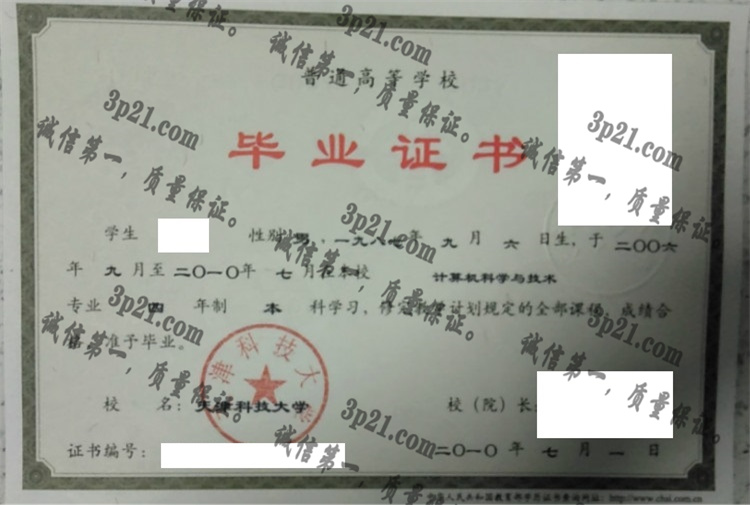 3p21.com
诚信第一，质量保证。
普通高等学校
毕业证书
学生 性别 男，一九八七年 九 月 六 日生，于 二〇〇六
年 九 月至 二〇一〇年 七 月在本校 计算机科学与技术
专业 四 年制 本 科学习，修完教学计划规定的全部课程，成绩合
格，准予毕业。
校 名：天津科技大学 校（院）长：
证书编号： 二〇一〇 年 七 月 一 日
中华人民共和国教育部学历证书查询网址：http://www.chsi.com.cn
天津科技大学
3p21.com
诚信第一，质量保证。
3p21.com
诚信第一，质量保证。
3p21.com
诚信第一，质量保证。
3p21.com
诚信第一，质量保证。
3p21.com
诚信第一，质量保证。
3p21.com
诚信第一，质量保证。